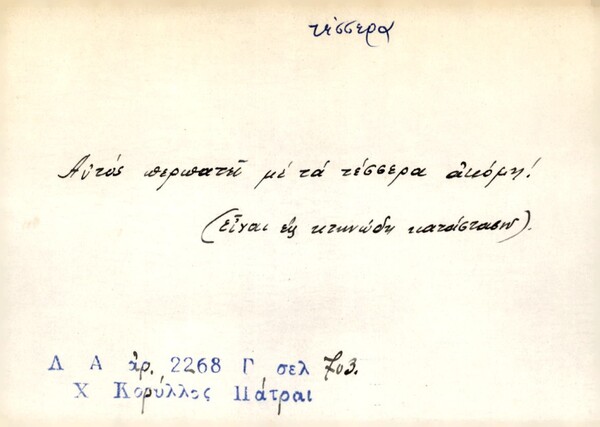 τέσσερα
Αὐτός περπατεῖ μέ τά τέσσερα ἀκόμη!
(εἶναι εἰς κτηνώδη κατάστασιν).
Λ Α ἀρ. 2268 Γ σελ 703.
Χ Κορύλλος Πάτραι